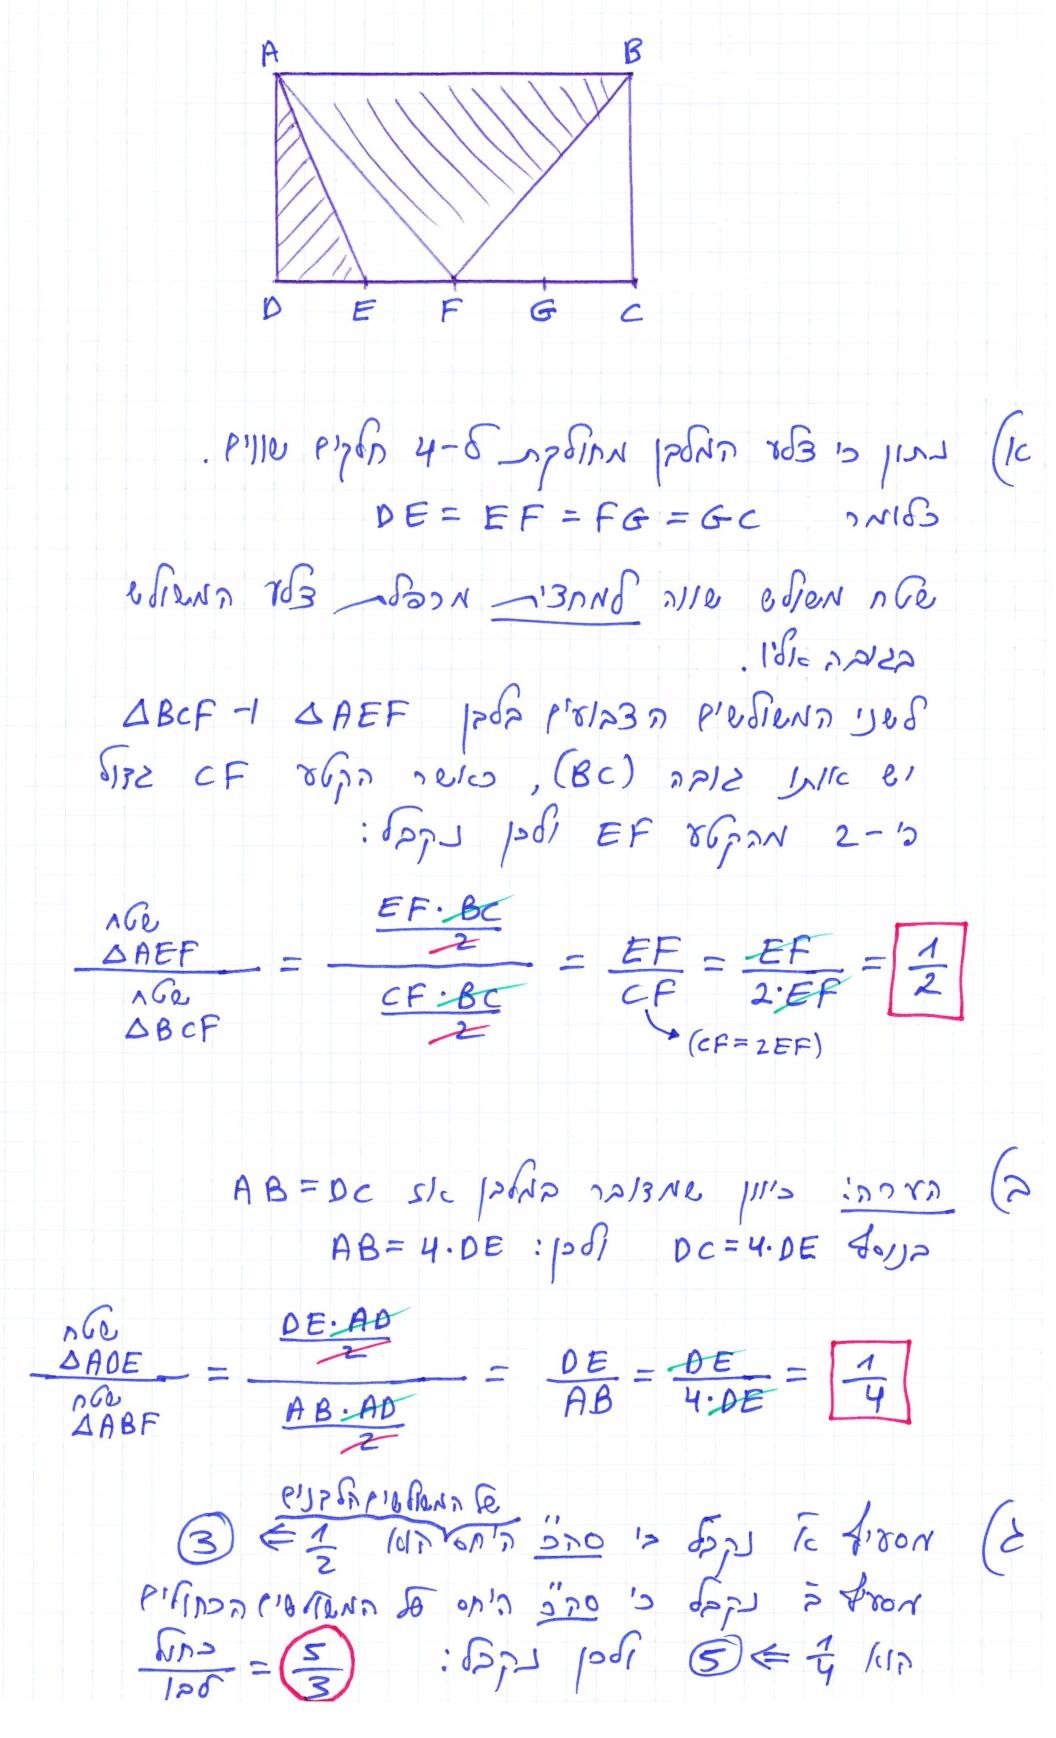 A B
D E F G C
א) נתון כי צלע המלבן מחולקת ל-4 חלקים שווים.
כלומר DE = EF = FG = GC
שטח משולש שווה למחצית מכפלת צלע המשולש
בגובה אליו.
לשני המשולשים הצבועים בלבן ΔAEF ו- ΔBCF
יש אותו גובה (BC), כאשר הקטע CF גדול
פי-2 מהקטע EF ולכן נקבל:
שטח ΔAEF / שטח ΔBCF = (EF·BC/2) / (CF·BC/2) = EF/CF = EF/2·EF = 1/2
(CF=2EF)
ב) הערה: כיוון שמדובר במלבן אז AB=DC
בנוסף DC=4·DE ולכן: AB=4·DE
שטח ΔADE / שטח ΔABF = (DE·AD/2) / (AB·AD/2) = DE/AB = DE/4·DE = 1/4
של המשולשים הלבנים
ג) מסעיף א נקבל כי סה"כ היחס הוא 1/2 ⇐ 3
מסעיף ב נקבל כי סה"כ היחס של המשולשים הכחולים
הוא 1/4 ⇐ 5 ולכן נקבל: כחול/לבן = 5/3